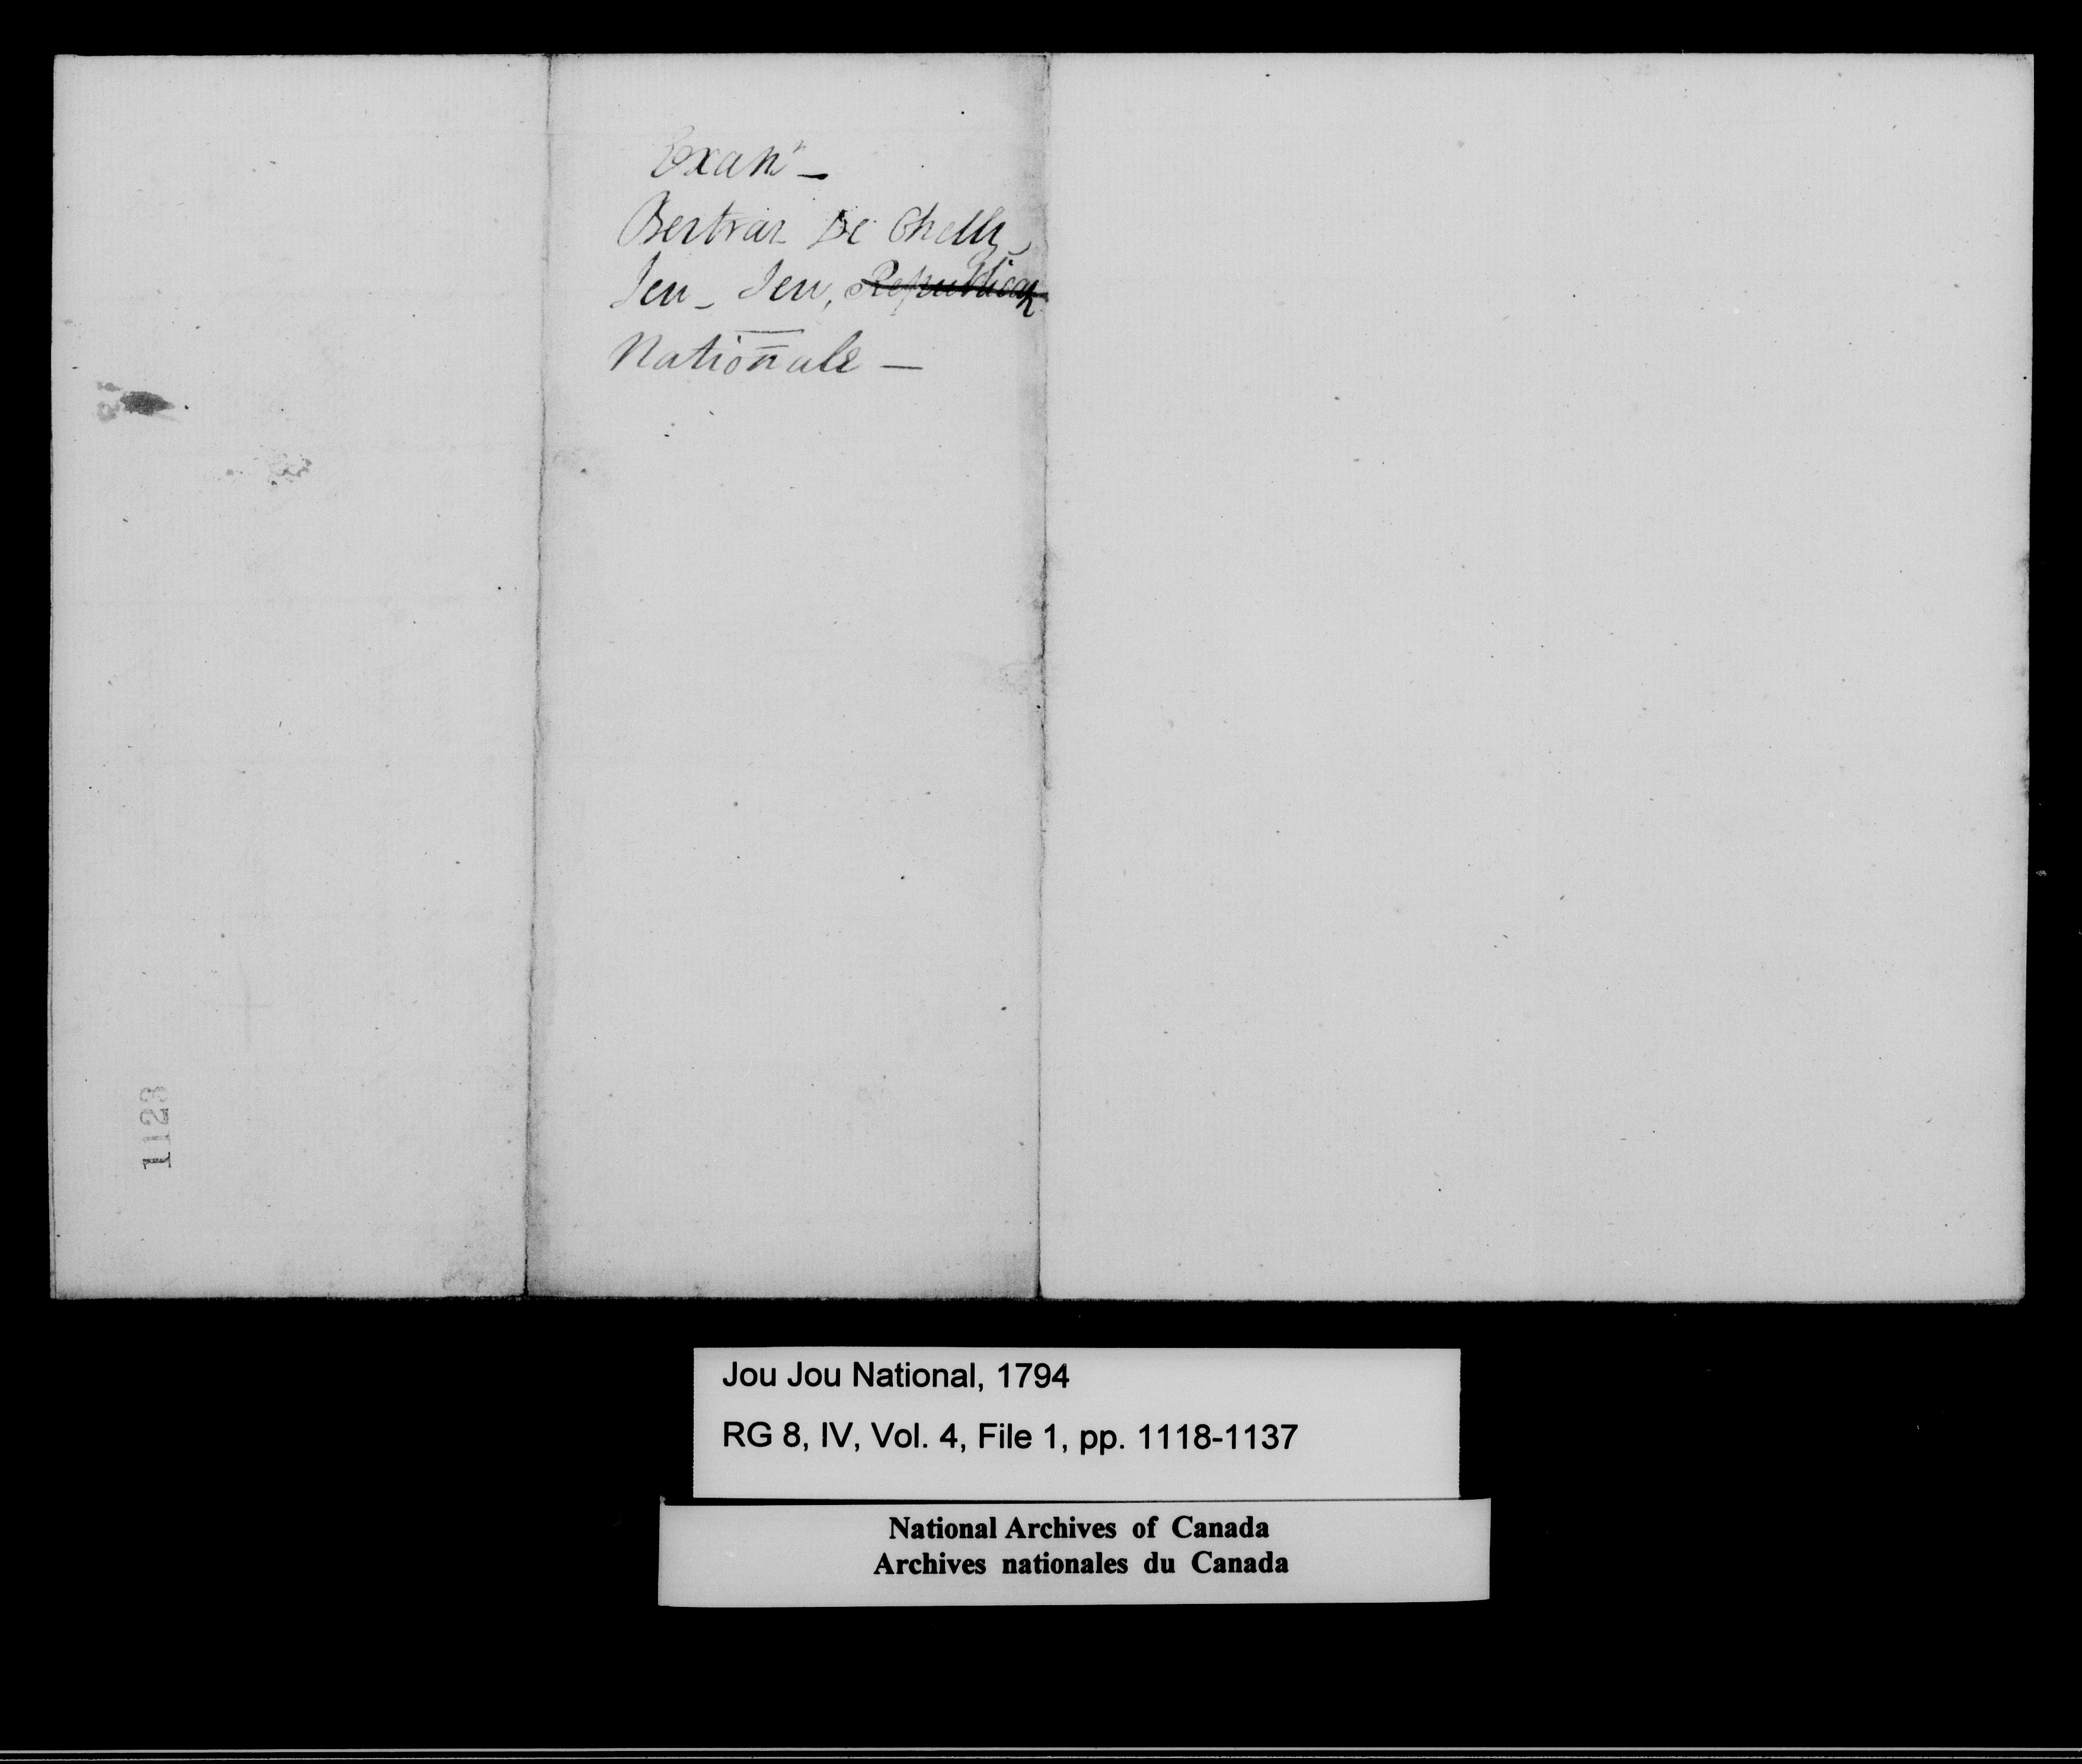 Exam^n —
Bertran De Chelly
Jeu - Jeu, Republican
Nationale —
1123
Jou Jou National, 1794
RG 8, IV, Vol. 4, File 1, pp. 1118-1137
National Archives of Canada
Archives nationales du Canada